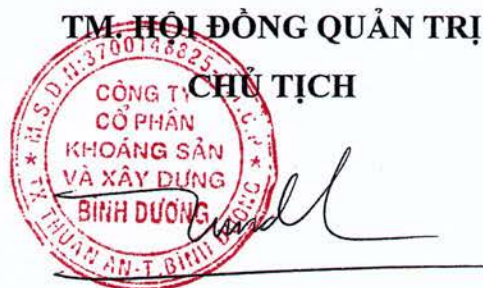 TM. HỘI ĐỒNG QUẢN TRỊ
CHỦ TỊCH
M.S.D.N:3700148825-C.T.C.P
CÔNG TY
CỔ PHẦN
KHOÁNG SẢN
VÀ XÂY DỰNG
BÌNH DƯƠNG
TX THUẬN AN-T.BÌNH DƯƠNG